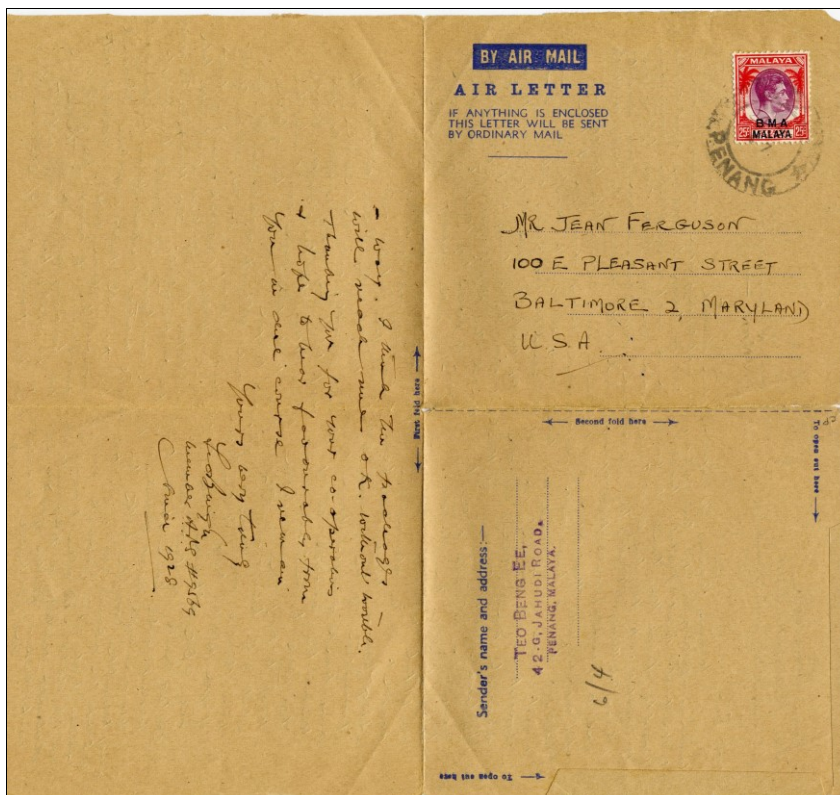 BY AIR MAIL
AIR LETTER
IF ANYTHING IS ENCLOSED
THIS LETTER WILL BE SENT
BY ORDINARY MAIL
MALAYA
BMA
MALAYA
25c 25c
PENANG
MR JEAN FERGUSON
100 E PLEASANT STREET
BALTIMORE 2, MARYLAND
U.S.A
First fold here
Second fold here
To open cut here
Sender's name and address:—
TEO BENG EE,
42-G, JAHUDI ROAD,
PENANG, MALAYA.
6/4
To open cut here
way. I think the packages
will reach me O.K. without trouble.
Thanking you for your co-operation
& hope to hear favourably from
you in due course I remain
Yours very truly
member
1928